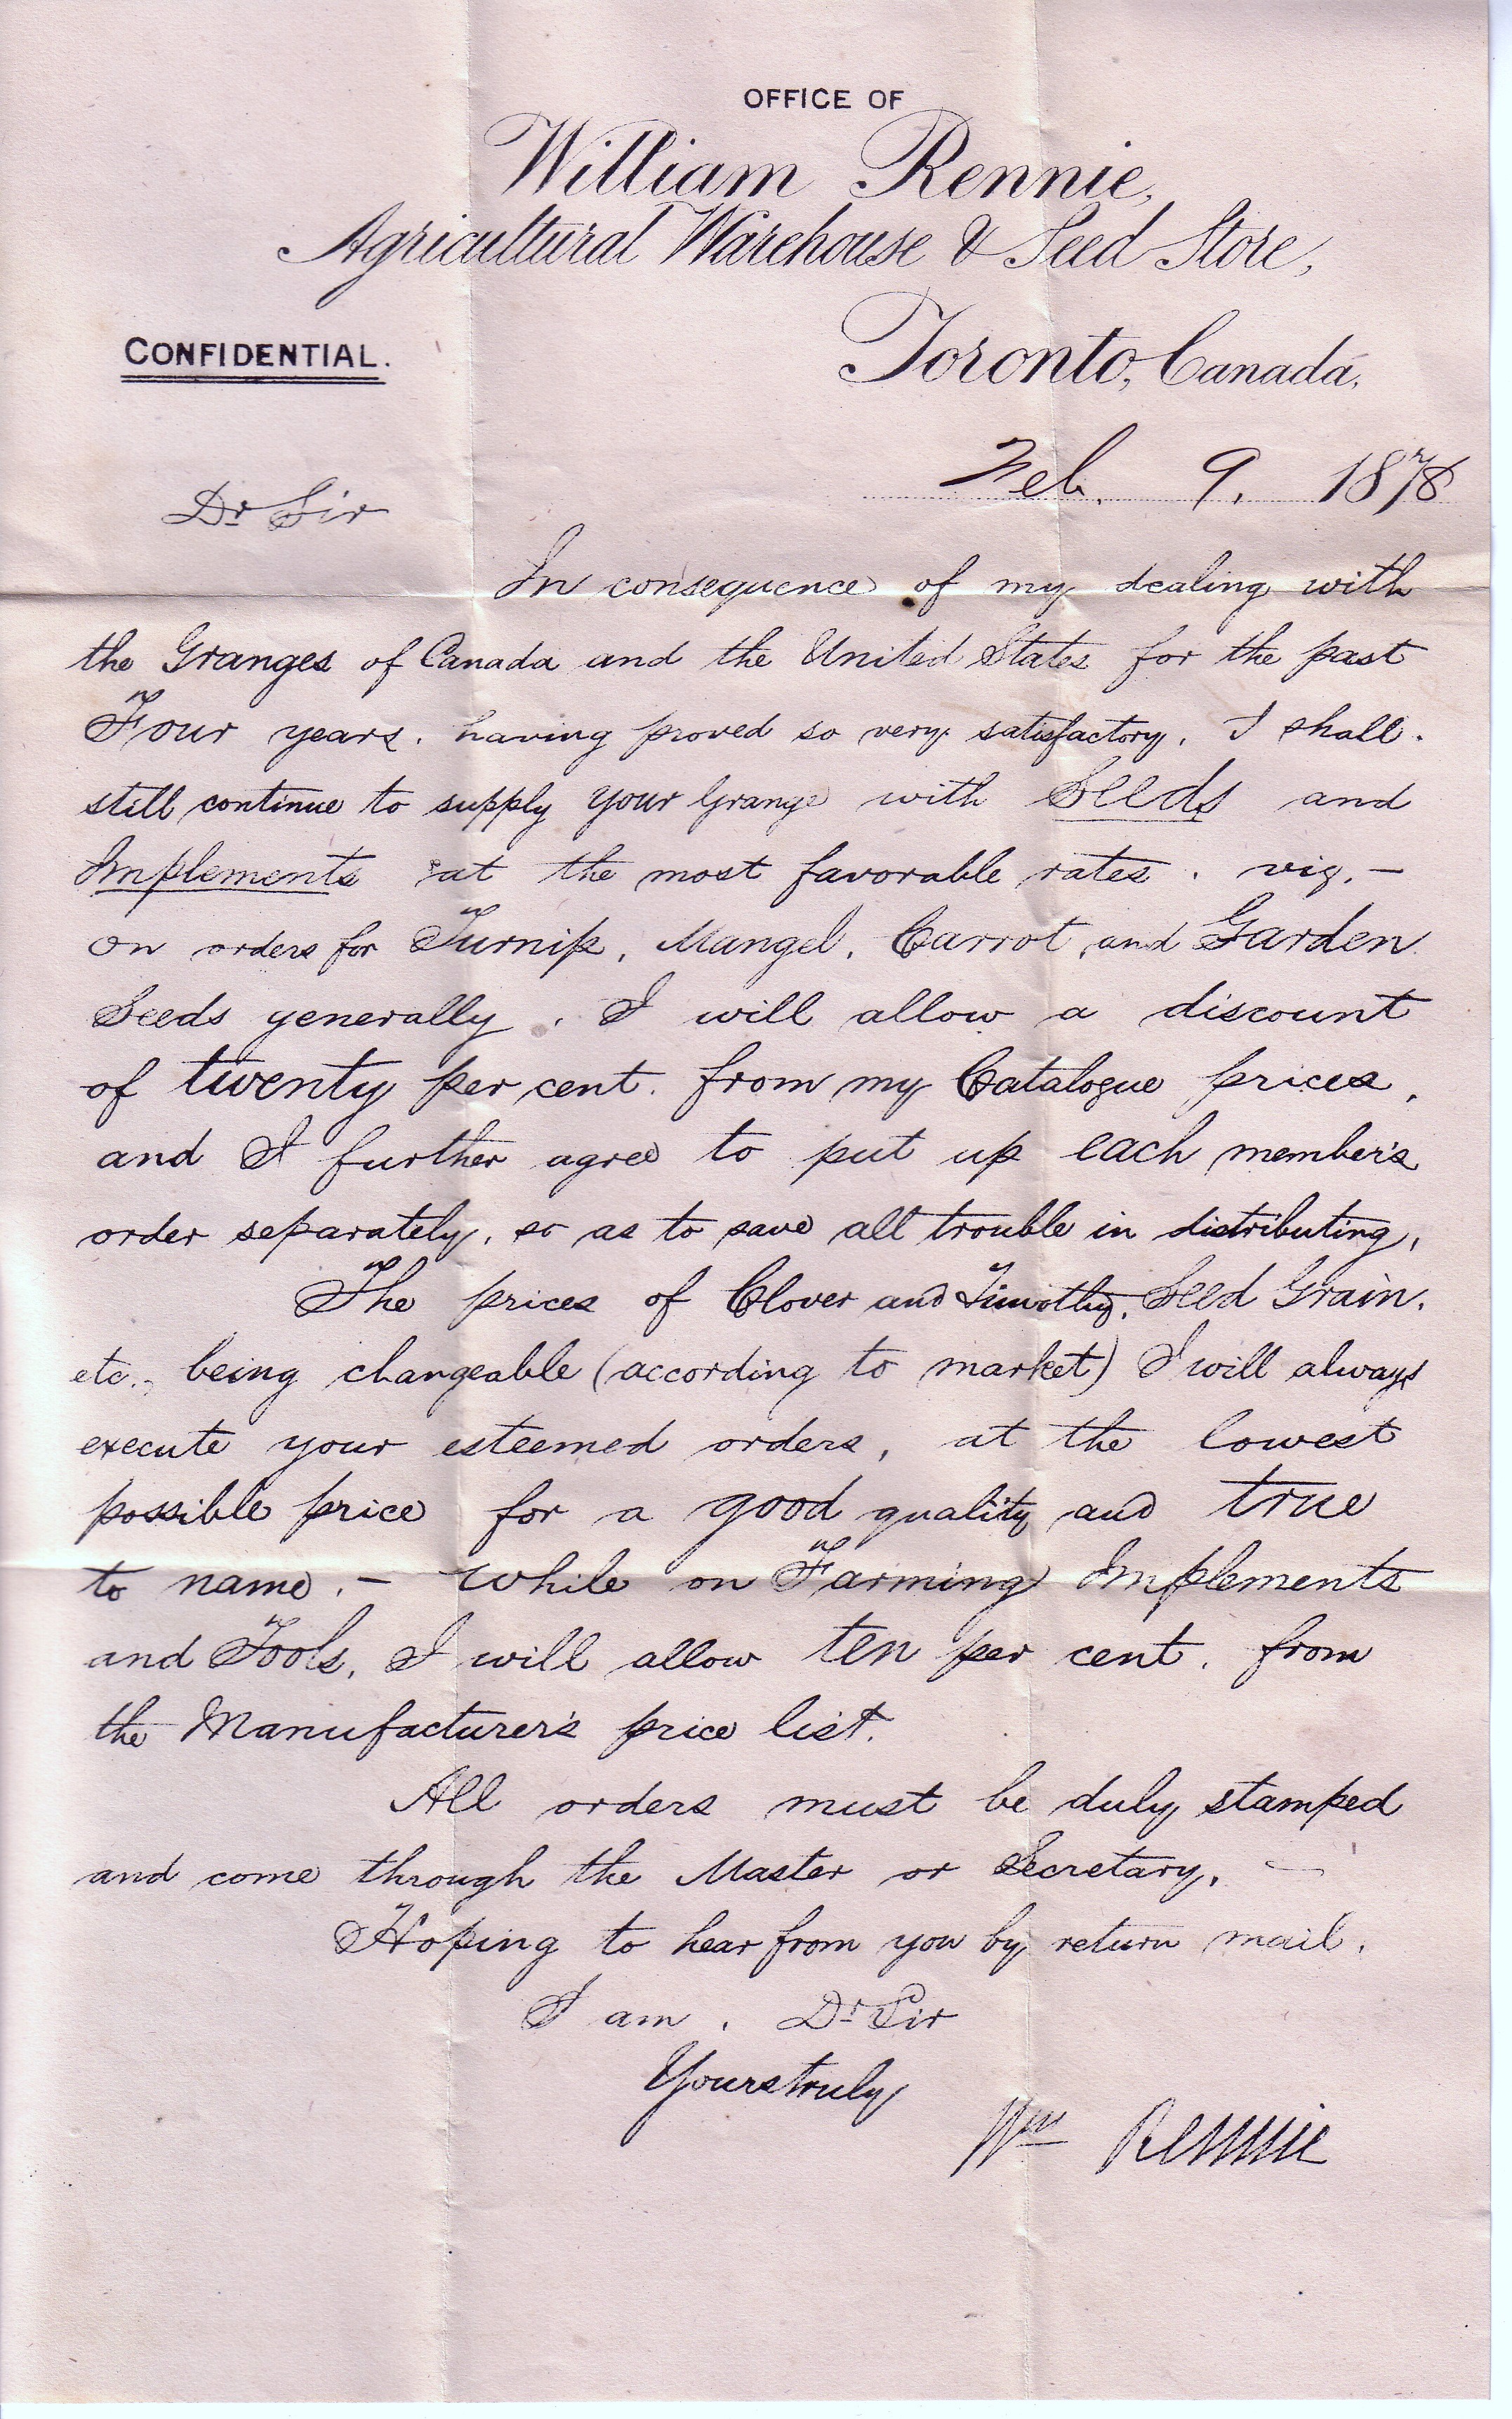 OFFICE OF
William Rennie,
Agricultural Warehouse & Seed Store,
CONFIDENTIAL.
Toronto, Canada,
Feb. 9. 1878
Dr Sir
In consequence of my dealing with
the Granges of Canada and the United States for the past
Four years. having proved so very satisfactory. I shall.
still continue to supply your Grange with Seeds and
Implements at the most favorable rates. viz. —
on orders for Turnip, Mangel, Carrot, and Garden
Seeds generally. I will allow a discount
of twenty per cent. from my Catalogue prices,
and I further agree to put up each member's
order separately, so as to save all trouble in distributing.
The prices of Clover and Timothy, Seed Grain,
etc., being changeable (according to market) I will always
execute your esteemed orders, at the lowest
possible price for a good quality and true
to name. — while on Farming Implements
and Tools, I will allow ten per cent. from
the Manufacturer's price list.
All orders must be duly stamped
and come through the Master or Secretary. —
Hoping to hear from you by return mail.
I am. Dr Sir
Yours truly
Wm Rennie